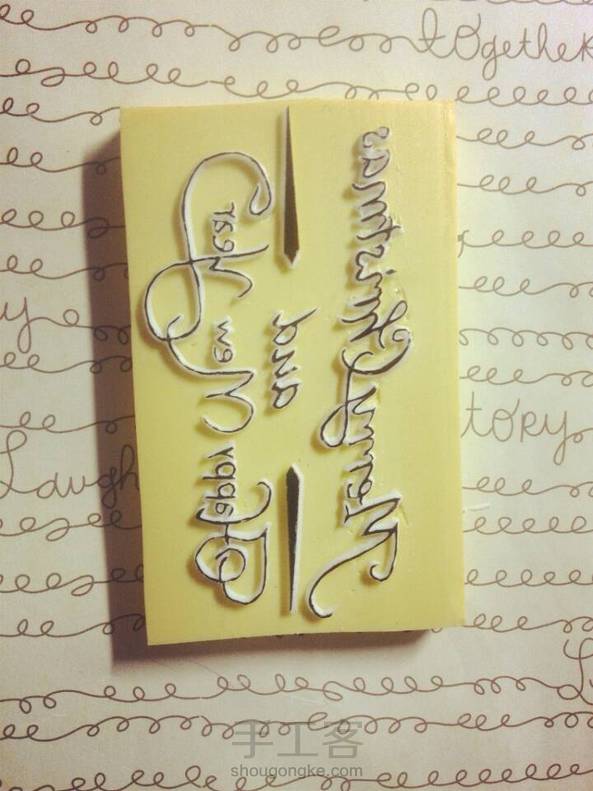 Merry Christmas
and
Happy New Year
together
Laugh
tory
手工客
shougongke.com